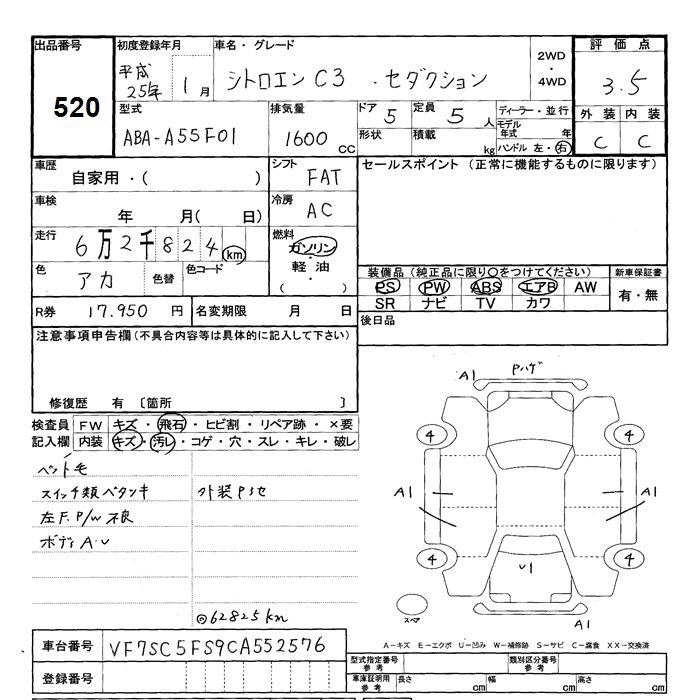 出品番号 初度登録年月 車名・グレード 評価点
520 平成25年 1月 シトロエン C3 ・セダクション 2WD・4WD 3.5
型式 排気量 ドア 5 定員 5人 ディーラー・並行 外装 内装
ABA-A55F01 1600 CC 形状 積載 kg モデル年式 年 ハンドル 左・右 C C
車歴 自家用・( ) シフト FAT セールスポイント (正常に機能するものに限ります)
車検 年 月( 日) 冷房 AC
走行 6万2千824 km 燃料 ガソリン・軽油・( )
色 アカ 色替 色コード 装備品 (純正品に限り○をつけてください) 新車保証書
PS PW ABS エアB AW 有・無
SR ナビ TV カワ
R券 17.950 円 名変期限 月 日 後日品
注意事項申告欄 (不具合内容等は具体的に記入して下さい)
修復歴 有 〔箇所 〕
検査員記入欄 FW キズ・飛石・ヒビ割・リペア跡・×要
内装 キズ・汚レ・コゲ・穴・スレ・キレ・破レ
ペット毛
スイッチ類ベタツキ 外装Psセ
左F.P/W不良
ボディA.U
◎62825km
A1 Pハゲ
4 4
A1 A1
4 4
U1
スペア A1
車台番号 VF7SC5FS9CA552576
A-キズ E-エクボ U-凹み W-補修跡 S-サビ C-腐食 XX-交換済
登録番号 型式指定番号参考 類別区分番号参考
車庫証明用参考 長さ cm 幅 cm 高さ cm